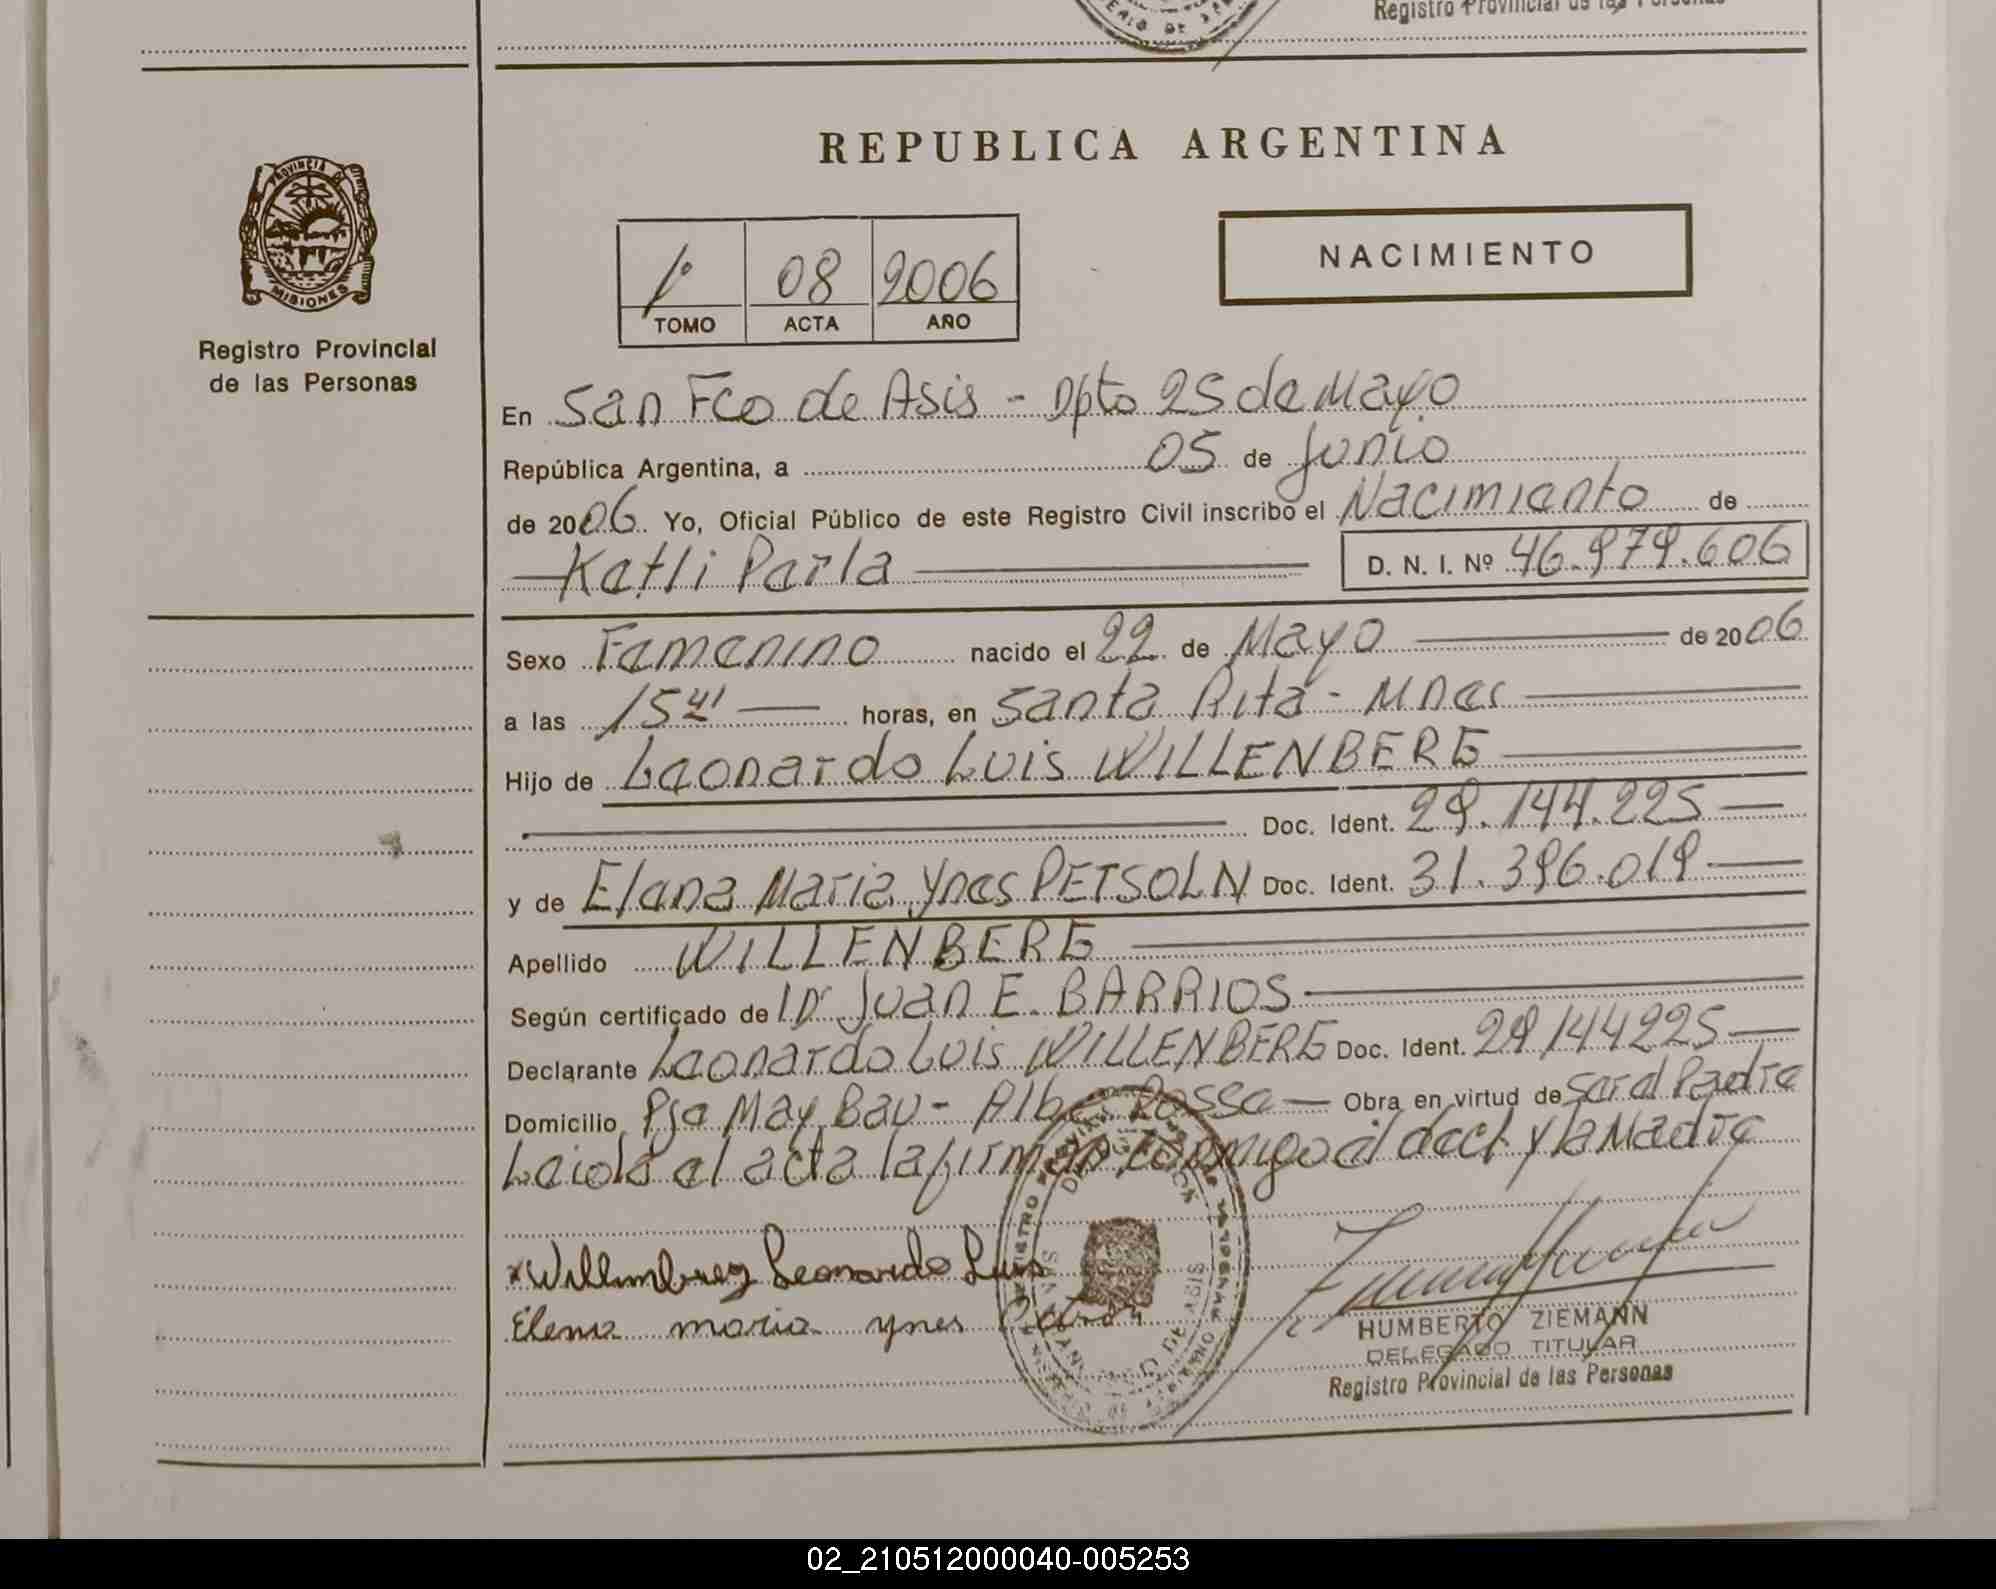 Registro Provincial de las Personas
REPUBLICA ARGENTINA
PROVINCIA DE
MISIONES
Registro Provincial
de las Personas
1º 08 2006
TOMO ACTA AÑO
NACIMIENTO
En San Fco de Asis - Dpto 25 de Mayo
República Argentina, a 05 de Junio
de 2006. Yo, Oficial Público de este Registro Civil inscribo el Nacimiento de
Katli Perla D. N. I. Nº 46.979.606
Sexo Femenino nacido el 22 de Mayo de 2006
a las 15 41 horas, en Santa Rita - Mnes
Hijo de Leonardo Luis WILLENBERG
Doc. Ident. 29.144.225
y de Elena Maria Ynes PETSOLN Doc. Ident. 31.396.019
Apellido WILLENBERG
Según certificado de Dr Juan E. BARRIOS
Declarante Leonardo Luis WILLENBERG Doc. Ident. 29144225
Domicilio Pje May Bau - Alba Rossa - Obra en virtud de ser el Padre
Leida el acta la firman conmigo el decl y la Madre
x Willemberg Leonardo Luis
Elena maria ynes
HUMBERTO ZIEMANN
DELEGADO TITULAR
Registro Provincial de las Personas
02_210512000040-005253